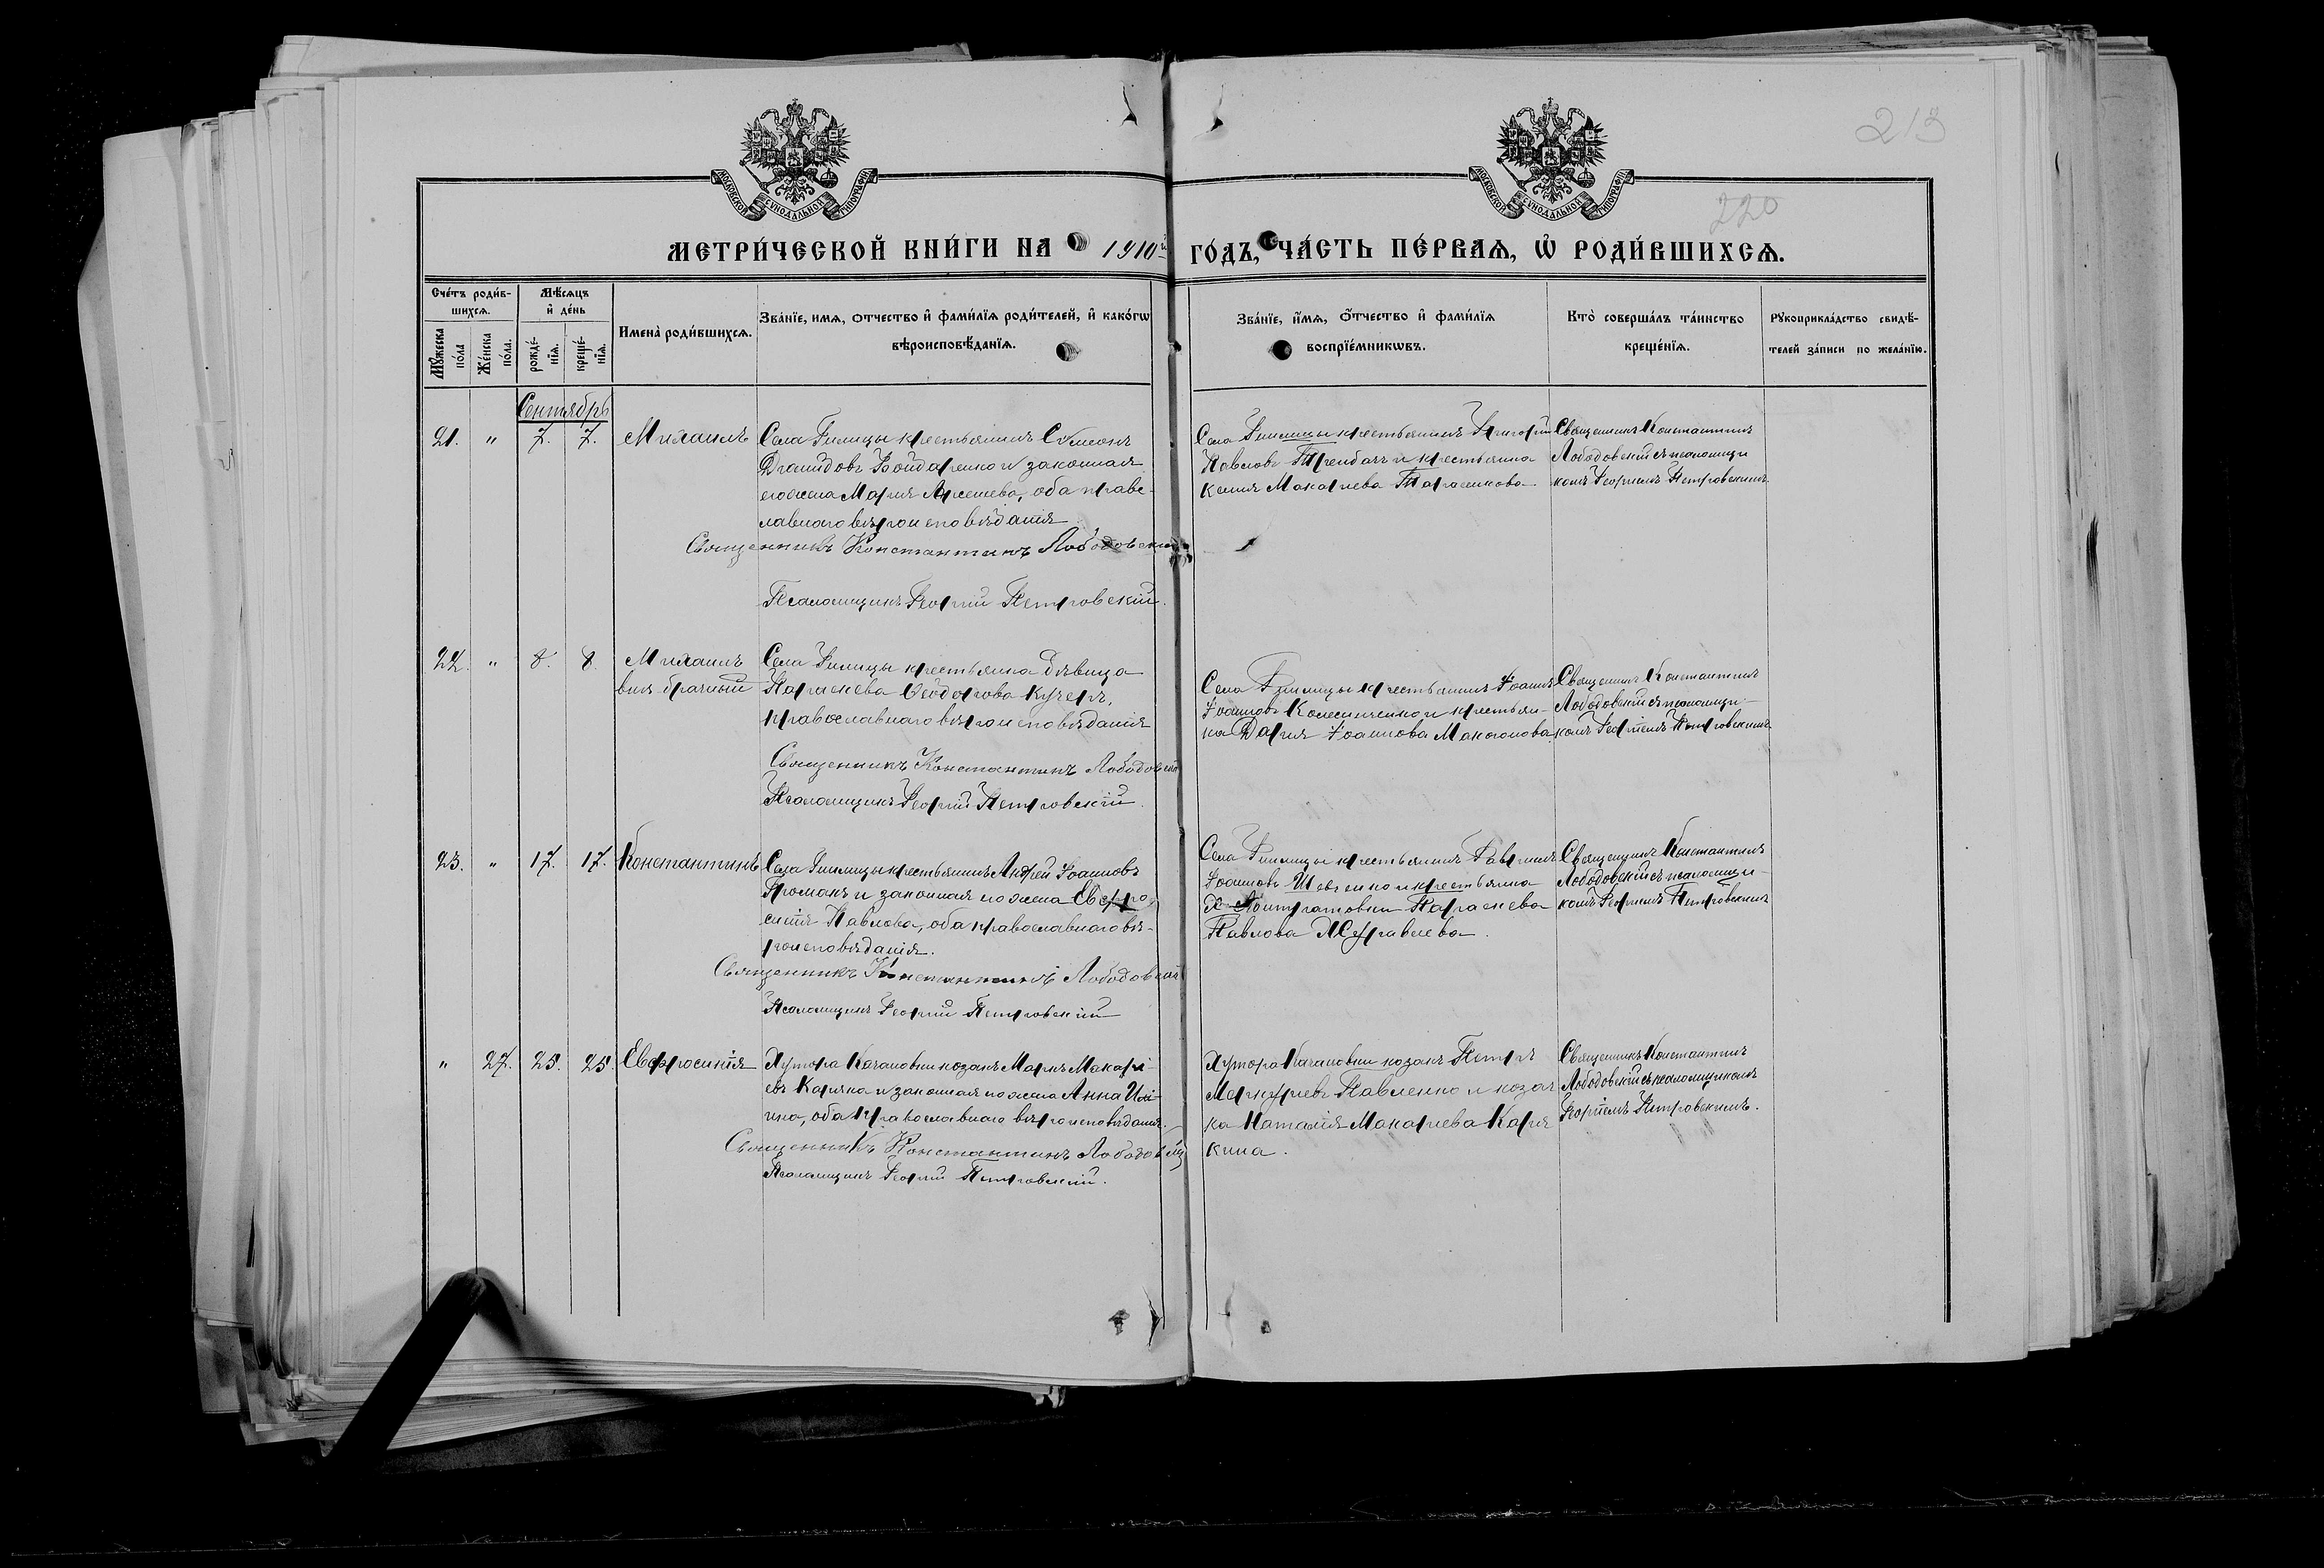 213
220
МОСКОВСКОЙ СУНОДАЛЬНОЙ ТИПОГРАФІИ
МОСКОВСКОЙ СУНОДАЛЬНОЙ ТИПОГРАФІИ
МЕТРИ́ЧЕСКОЙ КНИ́ГИ НА 1910й ГО́ДЪ, ЧА́СТЬ ПЕ́РВАѦ, Ѡ҆ РОДИ́ВШИХСѦ.
Сче́тъ роди́в-
шихсѧ.
Мꙋ́жеска
по́ла
Же́нска
по́ла.
Мѣ́сѧцъ
и҆ де́нь
рожде́-
нїѧ.
креще́-
нїѧ.
Имена̀ роди́вшихсѧ.
Зва́нїе, имѧ, отчество и҆ фами́лїѧ роди́телей, и҆ како́гѡ
вѣроисповѣ́данїѧ.
Зва́нїе, и҆́мѧ, о҆́тчество и҆ фами́лїѧ
воспрїе́мникѡвъ.
Кто̀ соверша́лъ та́инство
креще́нїѧ.
Рꙋкоприкла́дство свидѣ́-
телей за́писи по жела́нїю.
Сентябрь
21. " 7. 7. Михаилъ
Села крестьянинъ Сѵмеонъ
Діомидовъ Бондаренко и законная
его жена Марія оба право-
славнаго вѣроисповѣданія
Священникъ Константинъ Лободовскій
Псаломщикъ Георгій Петровскій.
Села крестьянинъ Григорій
Павловъ и крестьянка
Ксенія Макаріева Тарасенкова.
Священникъ Константинъ
Лободовскій съ псаломщи
комъ Георгіемъ Петровскимъ.
22. " 8. 8. Михаилъ
внѣбрачный
Села крестьянка дѣвица
Параскева Ѳеодорова Кучеръ,
православнаго вѣроисповѣданія
Священникъ Константинъ Лободовскій
Псаломщикъ Георгій Петровскій.
Села крестьянинъ Іоаннъ
Іоанновъ Колесниченко и крестьян-
ка Дарія Іоаннова Макогонова.
Священникъ Константинъ
Лободовскій съ псаломщи-
комъ Георгіемъ Петровскимъ
23. " 17. 17. Константинъ
Села крестьянинъ Андрей Іоанновъ
Громакъ и законная его жена Евфро-
синія Павлова, оба православнаго вѣ-
роисповѣданія.
Священникъ Константинъ Лободовскій
Псаломщикъ Георгій Петровскій
Села крестьянинъ Гавріилъ
Іоанновъ Шевченко и крестьянка
х. Параскева
Павлова Журавлева.
Священникъ Константинъ
Лободовскій съ псаломщи-
комъ Георгіемъ Петровскимъ
" 27. 25. 25. Евфросинія
Хутора Качановки козакъ Маркъ Макарі-
евъ Каряка и законная его жена Анна Илі-
ина, оба православнаго вѣроисповѣданія.
Священникъ Константинъ Лободовскій
Псаломщикъ Георгій Петровскій.
Хутора Качановки козакъ Петръ
Меркуріевъ Павленко и козач
ка Наталія Макаріева Каря
кина.
Священникъ Константинъ
Лободовскій съ псаломщикомъ
Георгіемъ Петровскимъ.